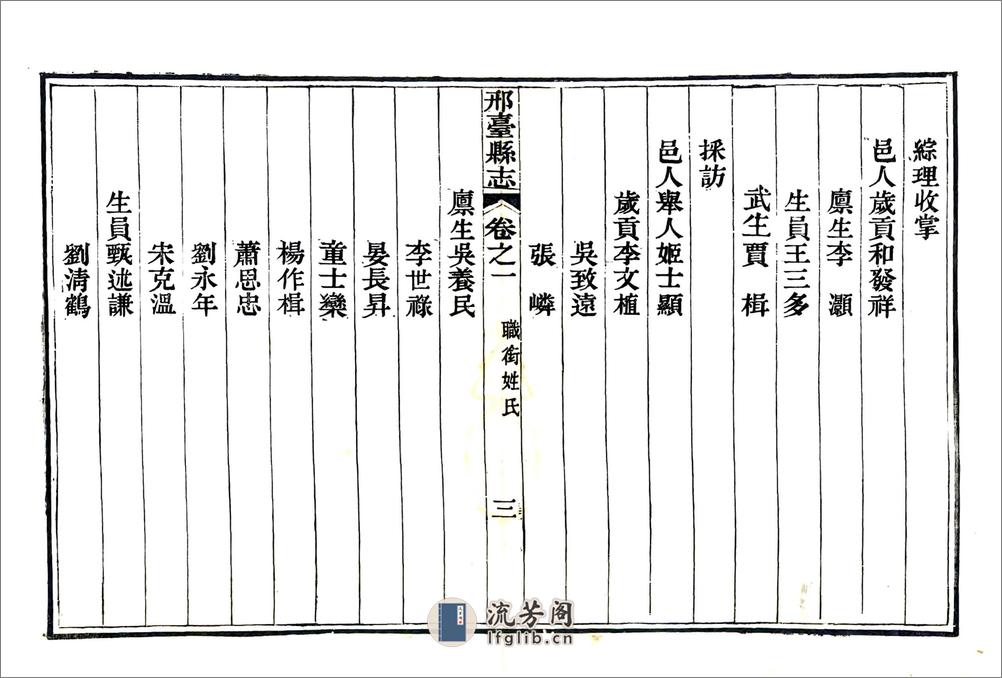 綜理收掌
邑人歲貢和發祥
廪生李灝
生員王三多
武生賈楫
採訪
邑人舉人姬士顯
歲貢李文植
吳致遠
張嶙
邢臺縣志 卷之一 職銜姓氏 三
廪生吳養民
李世祿
晏長昇
童士欒
楊作楫
蕭思忠
劉永年
宋克溫
生員甄述謙
劉清鶴
流芳阁
lfglib.cn